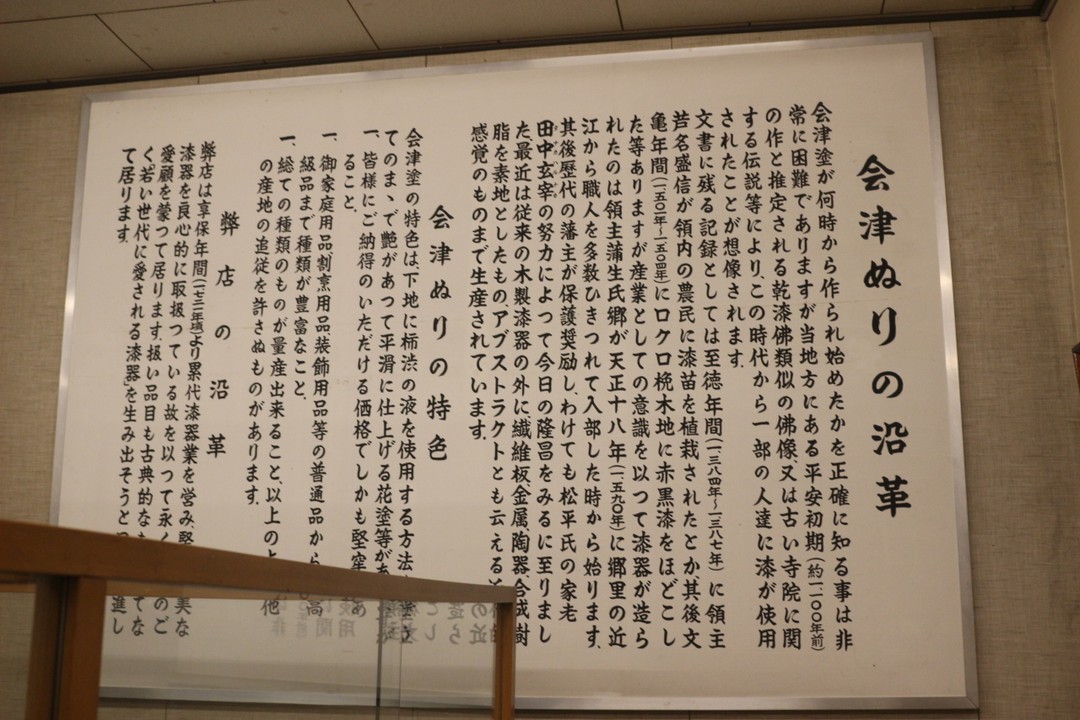 会津ぬりの沿革
会津塗が何時から作られ始めたかを正確に知る事は非
常に困難でありますが当地方にある平安初期(約一二〇〇年前)
の作と推定される乾漆佛類似の佛像又は古い寺院に関
する伝説等により、この時代から一部の人達に漆が使用
されたことが想像されます。
文書に残る記録としては至徳年間(一三八四年〜一三八七年)に領主
芦名盛信が領内の農民に漆苗を植栽されたとか其後文
亀年間(一五〇一年〜一五〇四年)にロクロ椀木地に赤黒漆をほどこし
た等ありますが産業としての意識を以つて漆器が造ら
れたのは領主蒲生氏郷が天正十八年(一五九〇年)に郷里の近
江から職人を多数ひきつれて入部した時から始ります。
其後歴代の藩主が保護奨励し、わけても松平氏の家老
田中玄宰の努力によつて今日の隆昌をみるに至りまし
た。最近は従来の木製漆器の外に繊維板、金属、陶器、合成樹
脂を素地としたものアブストラクトとも云える
感覚のものまで生産されています。
会津ぬりの特色
会津塗の特色は、下地に柿渋の液を使用する方法
てのまゝで艶があつて平滑に仕上げる花塗等があ
一、皆様にご納得のいただける価格でしかも堅牢
ること。
一、御家庭用品、割烹用品、装飾用品等の普通品から高
級品まで種類が豊富なこと、
一、総ての種類のものが量産出来ること、以上の 他
の産地の追従を許さぬものがあります。
弊店の沿革
弊店は享保年間(一七二一年頃)より累代漆器業を営み、堅 実な
漆器を良心的に取扱つている故を以つて永く のご
愛顧を蒙つて居ります。扱い品目も古典的な てな
く、若い世代に愛される漆器”を生み出そうと 進し
て居ります。